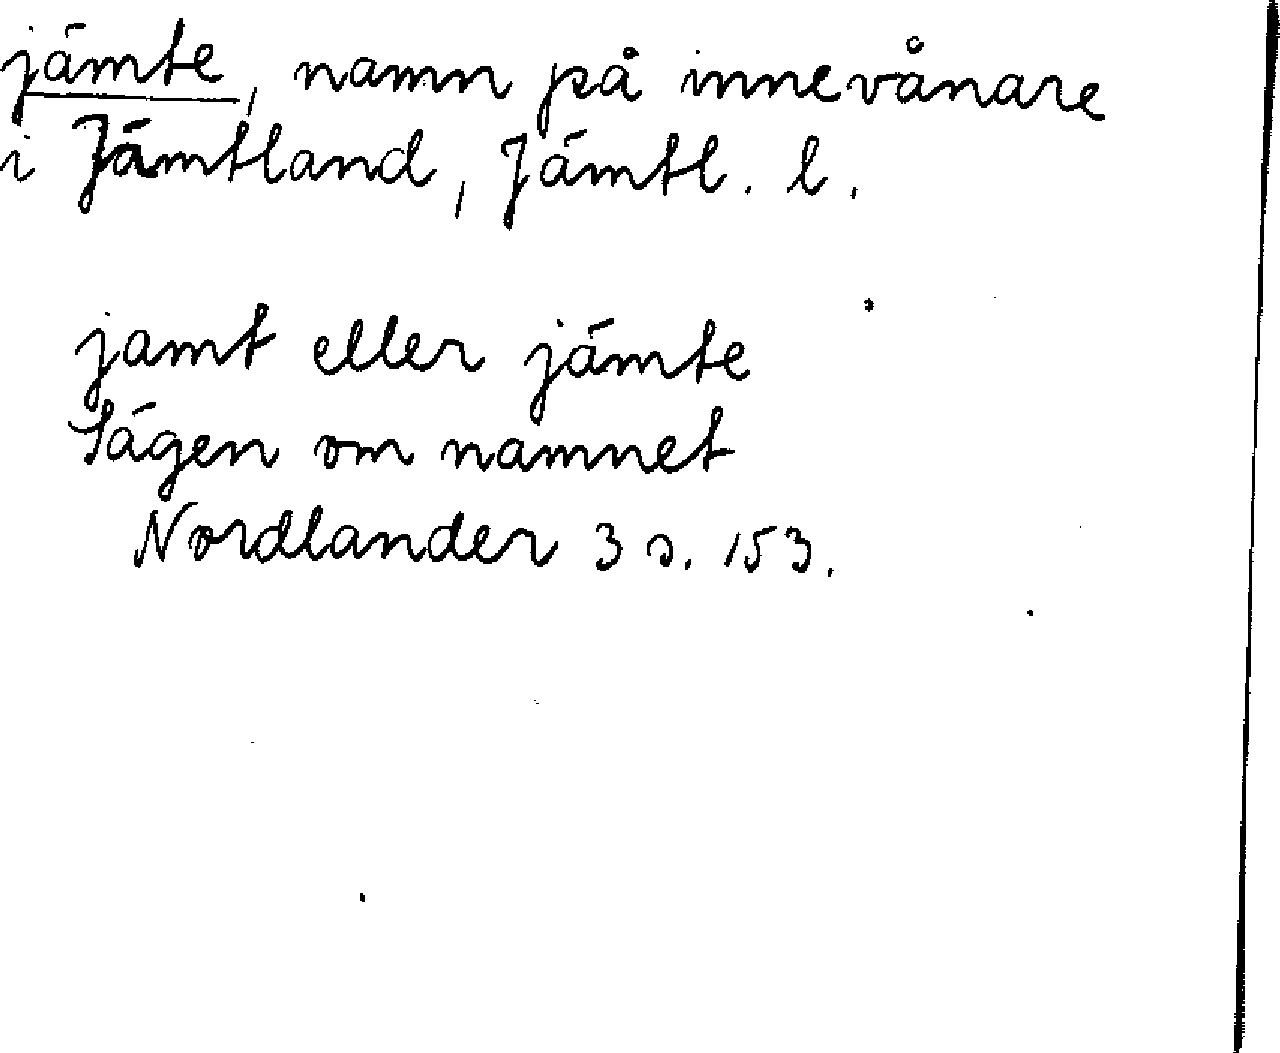 jämte, namn på innevånare
i Jämtland, Jämtl. l.
jamt eller jämte
Sägen om namnet
Nordlander 3 s. 153.